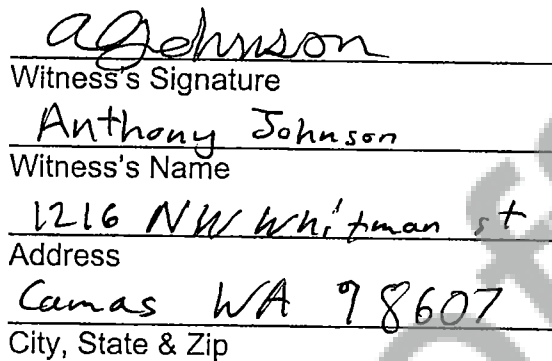 aJohnson
Witness's Signature
Anthony Johnson
Witness's Name
1216 NW Whitman st
Address
Camas WA 98607
City, State & Zip